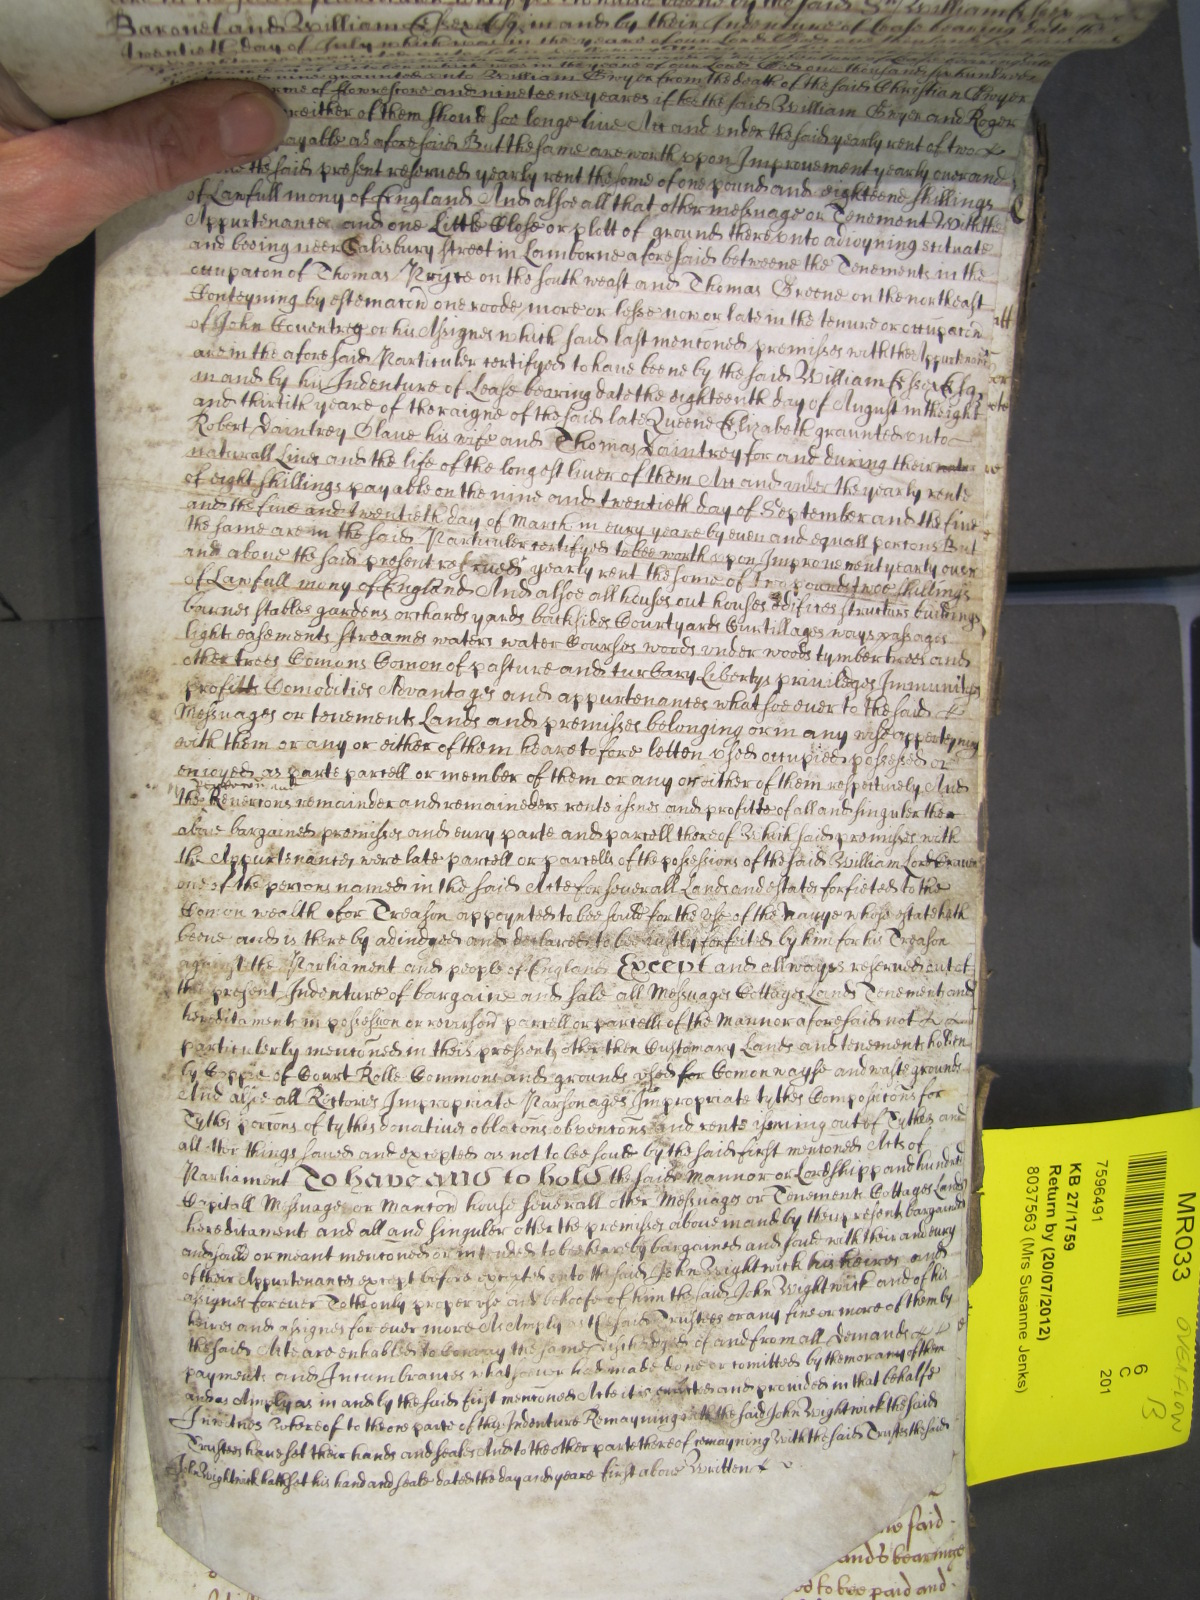 Baronet and William Essex Esq in and by their Indenture of Lease bearing date the
twentieth day of July which was in the yeare of our Lord
graunted unto William Gryer from the death of the said Christian Gryer
terme of flowrescore and nineteene yeares if hee the said William Gryer and Roger
or either of them should soe longe live Att and under the said yearly rent of twoe
payable as aforesaid But the same are worth vpon Improvement yearly over and
the said present reserved yearly rent the some of one pound and eighteene shillings
of Lawfull mony of England And alsoe all that other messuage or Tenement With the
Appurtenances and one Little Close or plott of ground there vnto adioyning scituate
and beeing neer Salisbury street in Lamborne aforesaid betweene the Tenements in the
occupacon of Thomas Pryce on the south west and Thomas Greene on the northeast
Conteyning by estemacon one roode more or lesse now or late in the tenure or occupacon
of John Coventrey or his Assignes which said last mentioned premisses with the Appurtenances
are in the aforesaid Particuler certifyed to have beene by the said William Essex Esq
in and by his Indenture of Lease bearing date the eighteenth day of August in the eight
and thirtith yeare of the raigne of the said late Queene Elizabeth graunted vnto
Robert Daintrey Olave his wife and Thomas Daintrey for and during their
naturall Lives and the life of the longest liver of them Att and under the yearly rente
of eight shillings payable on the nine and twentieth day of September and the five
and the five and twentieth day of March in eury yeare by even and equall porcons But
the same are in the said Particuler certifyed to bee worth vpon Improvement yearly over
and above the said present reserved yearly rent the some of two pounds twoe shillings
of Lawfull mony of England And alsoe all houses out houses edifices structurs buildings
barnes stables gardens orchards yards backsides Courtyards Curtillages ways passages
lights easements streames waters water Courses woods vnder woods tymber trees and
other trees Comons Comon of pasture and turbary Libertys priviledges Immunityes
profitts Comodities Advantages and appurtenances whatsoe ever to the said
Messuages or tenements Lands and premisses belonging or in any wise apperteyning
with them or any or either of them heare tofore letten vsed occupied possessed or
enioyed as parte parcell or member of them or any or either of them respectively And
the Revercons remainder and remaineders rente issues and profitts of all and singuler the
above bargained premisses and eury parte and parcell thereof Which said premisses with
the Appurtenances were late parcell or parcells of the possessions of the said William Lord Craven
one of the persons named in the said Acte for severall Lands and estates forfieted to the
Comon wealth for Treason appoynted to bee sould for the vse of the Navye whose estate hath
beene and is there by adiudged and declared to bee iustly forfeited by him for his Treason
against the Parliament and people of England Except and allwayes reserved out of
this present Indenture of bargaine and sale all Messuages Cottages Lands Tenements and
hereditaments in possession or revercon parcell or parcells of the Mannor aforesaid not
particulerly menconed in theis presents other then Customary Lands and tenements holden
by Coppie of Court Rolle Commons and grounds vsed for Comonwayse and waste grounds
And alsoe all Rectories Impropriate Parsonages Impropriate tythes Composicons for
Tythes porcons of tythes donatives oblacons obvencons and rente issueing out of Tythes and
all other things saved and excepted as not to bee sould by the said first mencioned Acts of
Parliament To have and to hold the said Mannor or Lordshipp and hundred
Capitall Messuage or Mancon house severall other Messuages or Tenements Cottages Lands
hereditaments and all and singuler other the premisses above in and by these presents bargained
and sould or meant mentioned or intended to bee hereby bargained and sould with their and eury
of their Appurtenances except before excepted vnto the said John Wightwick his heires and
assignes forever To the only proper vse and behoofe of him the said John Wightwick and of his
heires and assignes for ever more As Amply as the said Trustees or any five or more of them by
the said Acte are enhabled to Convey the same discharged of and from all demands
payments and Incumbrances whatsoever had made done or comitted by them or any of them
and as Amply as in and by the said first mencioned Acte it is enacted and provided in that behalfe
In witnes Whereof to the one parte of this Indenture Remayning with the said John Wightwick the said
Trustees have set their hands and seales And to the other parte thereof remayning With the said Trustees the said
John Wightwick hath set his hand and seale dated the day and yeare first above Written
said
and bearinge
to bee paid and
MR033
OVERFLOW
13
7596491
6
C
201
KB 27/1759
Return by (20/07/2012)
8037563 (Mrs Susanne Jenks)